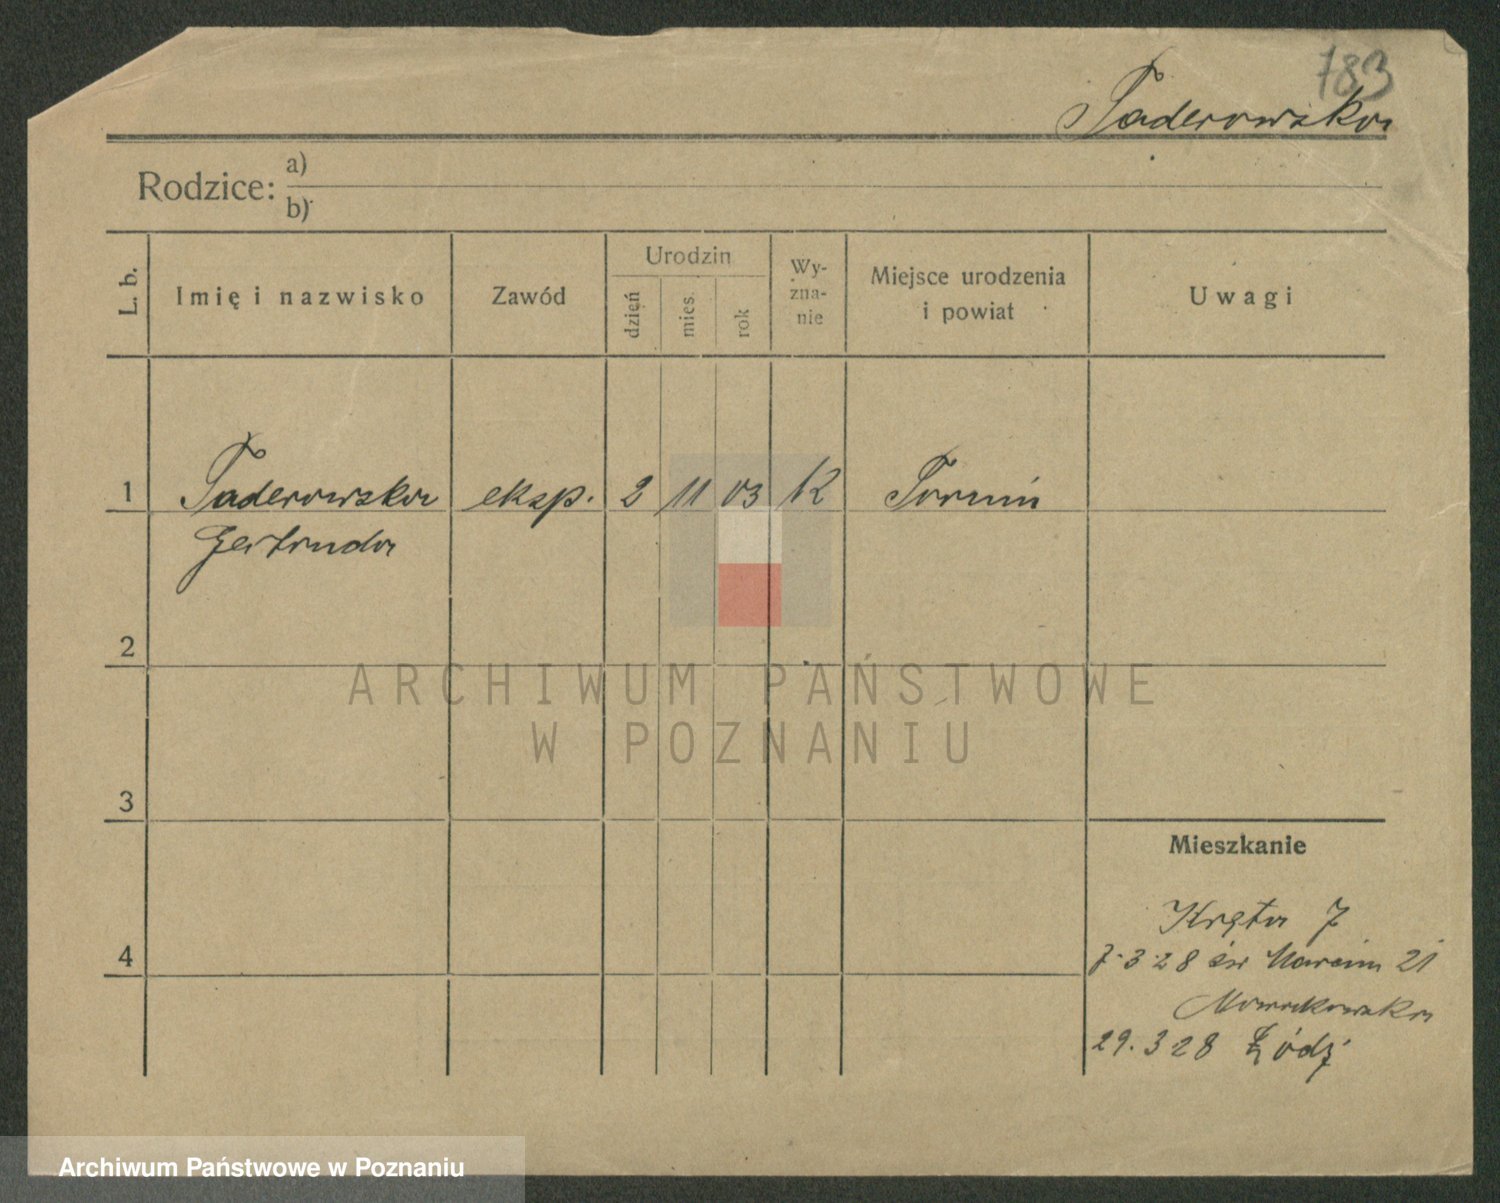 783
Taderowska
Rodzice: a)
b)
L. b.
Imię i nazwisko
Zawód
Urodzin
dzień
mies.
rok
Wy-
zna-
nie
Miejsce urodzenia
i powiat
Uwagi
1 Taderowska eksp. 2 11 03 K Toruń
Gertruda
2
3
4
Mieszkanie
Kręta 7
7.3.28 św Marcin 21
29.3.28 Łódź
ARCHIWUM PAŃSTWOWE
W POZNANIU
Archiwum Państwowe w Poznaniu